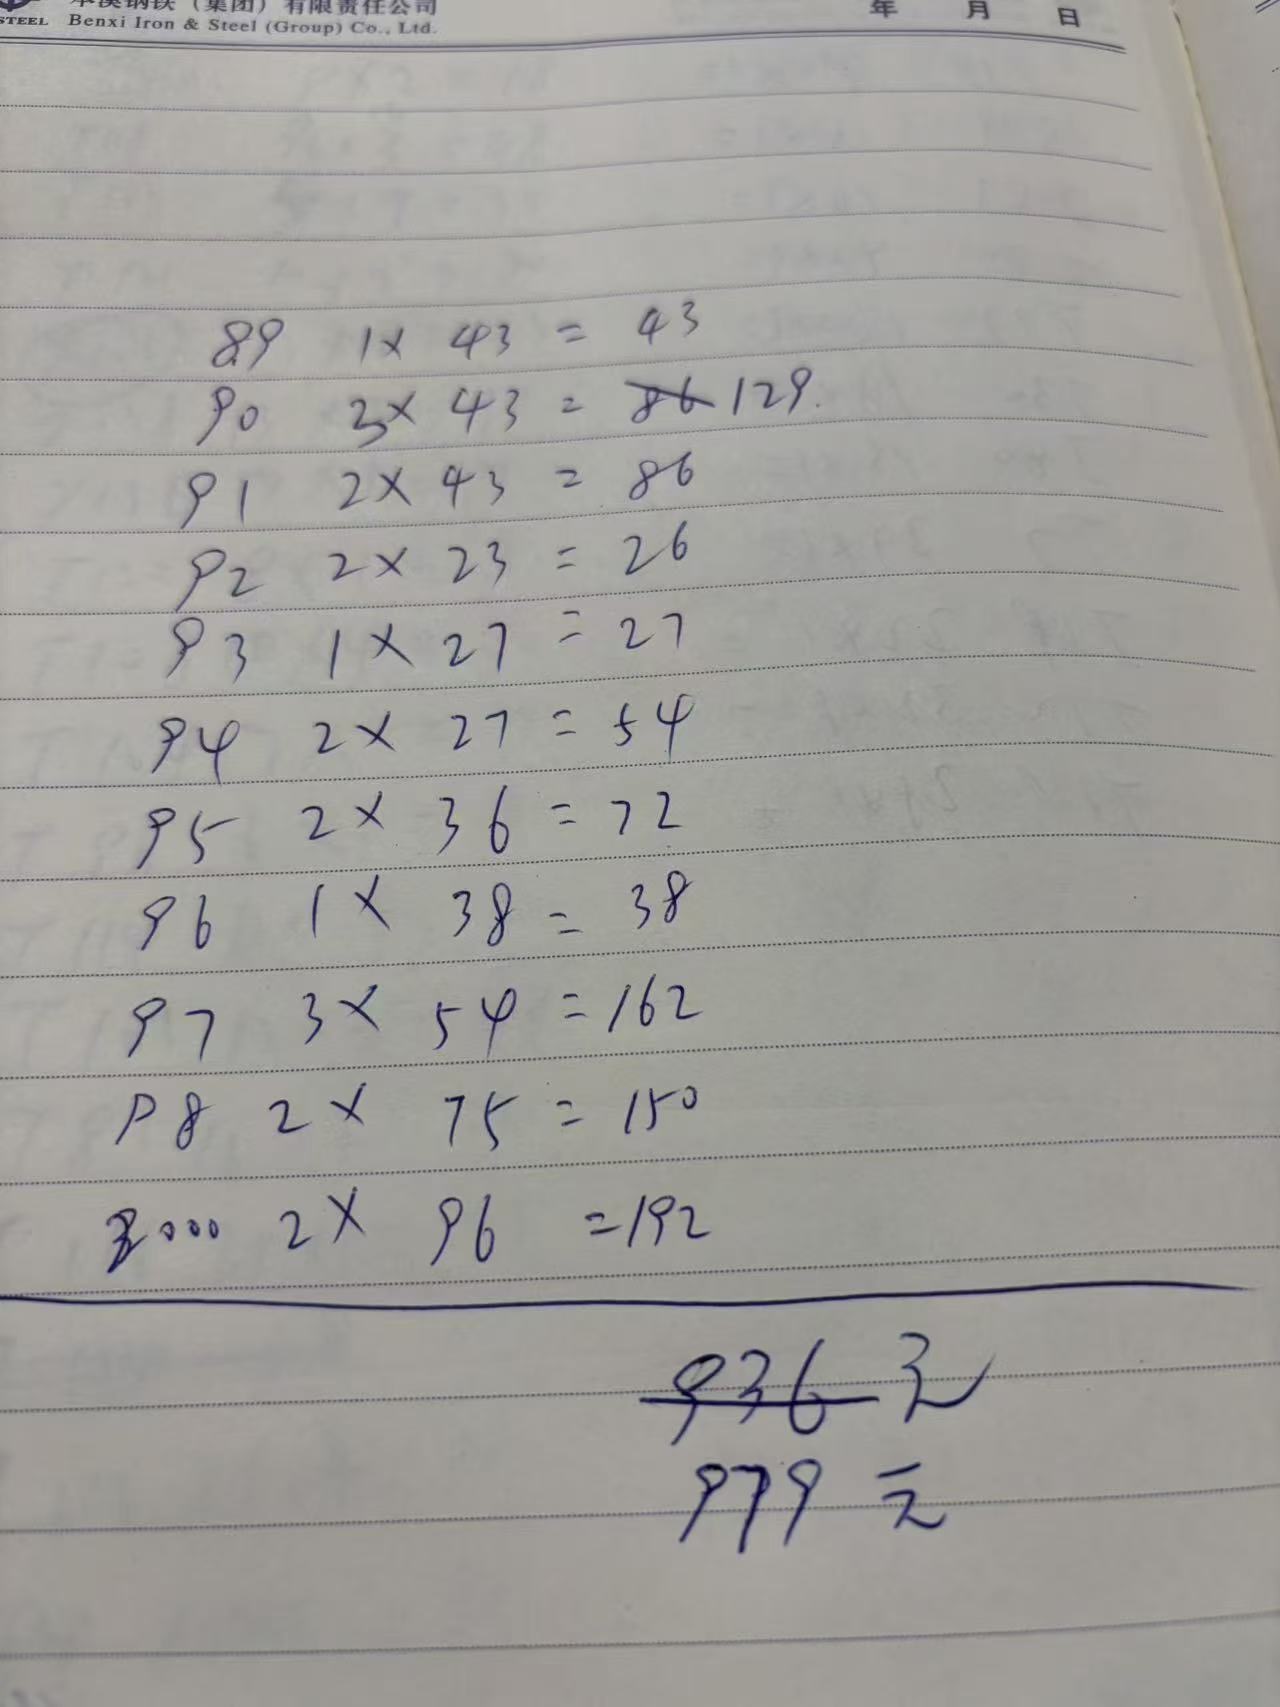 本溪钢铁（集团）有限责任公司
STEEL Benxi Iron & Steel (Group) Co., Ltd.
年 月 日
89 1× 43 = 43
90 3× 43 = 86 129.
91 2× 43 = 86
92 2× 23 = 26
93 1× 27 = 27
94 2× 27 = 54
95 2× 36 = 72
96 1× 38 = 38
97 3× 54 = 162
98 2× 75 = 150
2000 2× 96 = 192
936 元
979 元